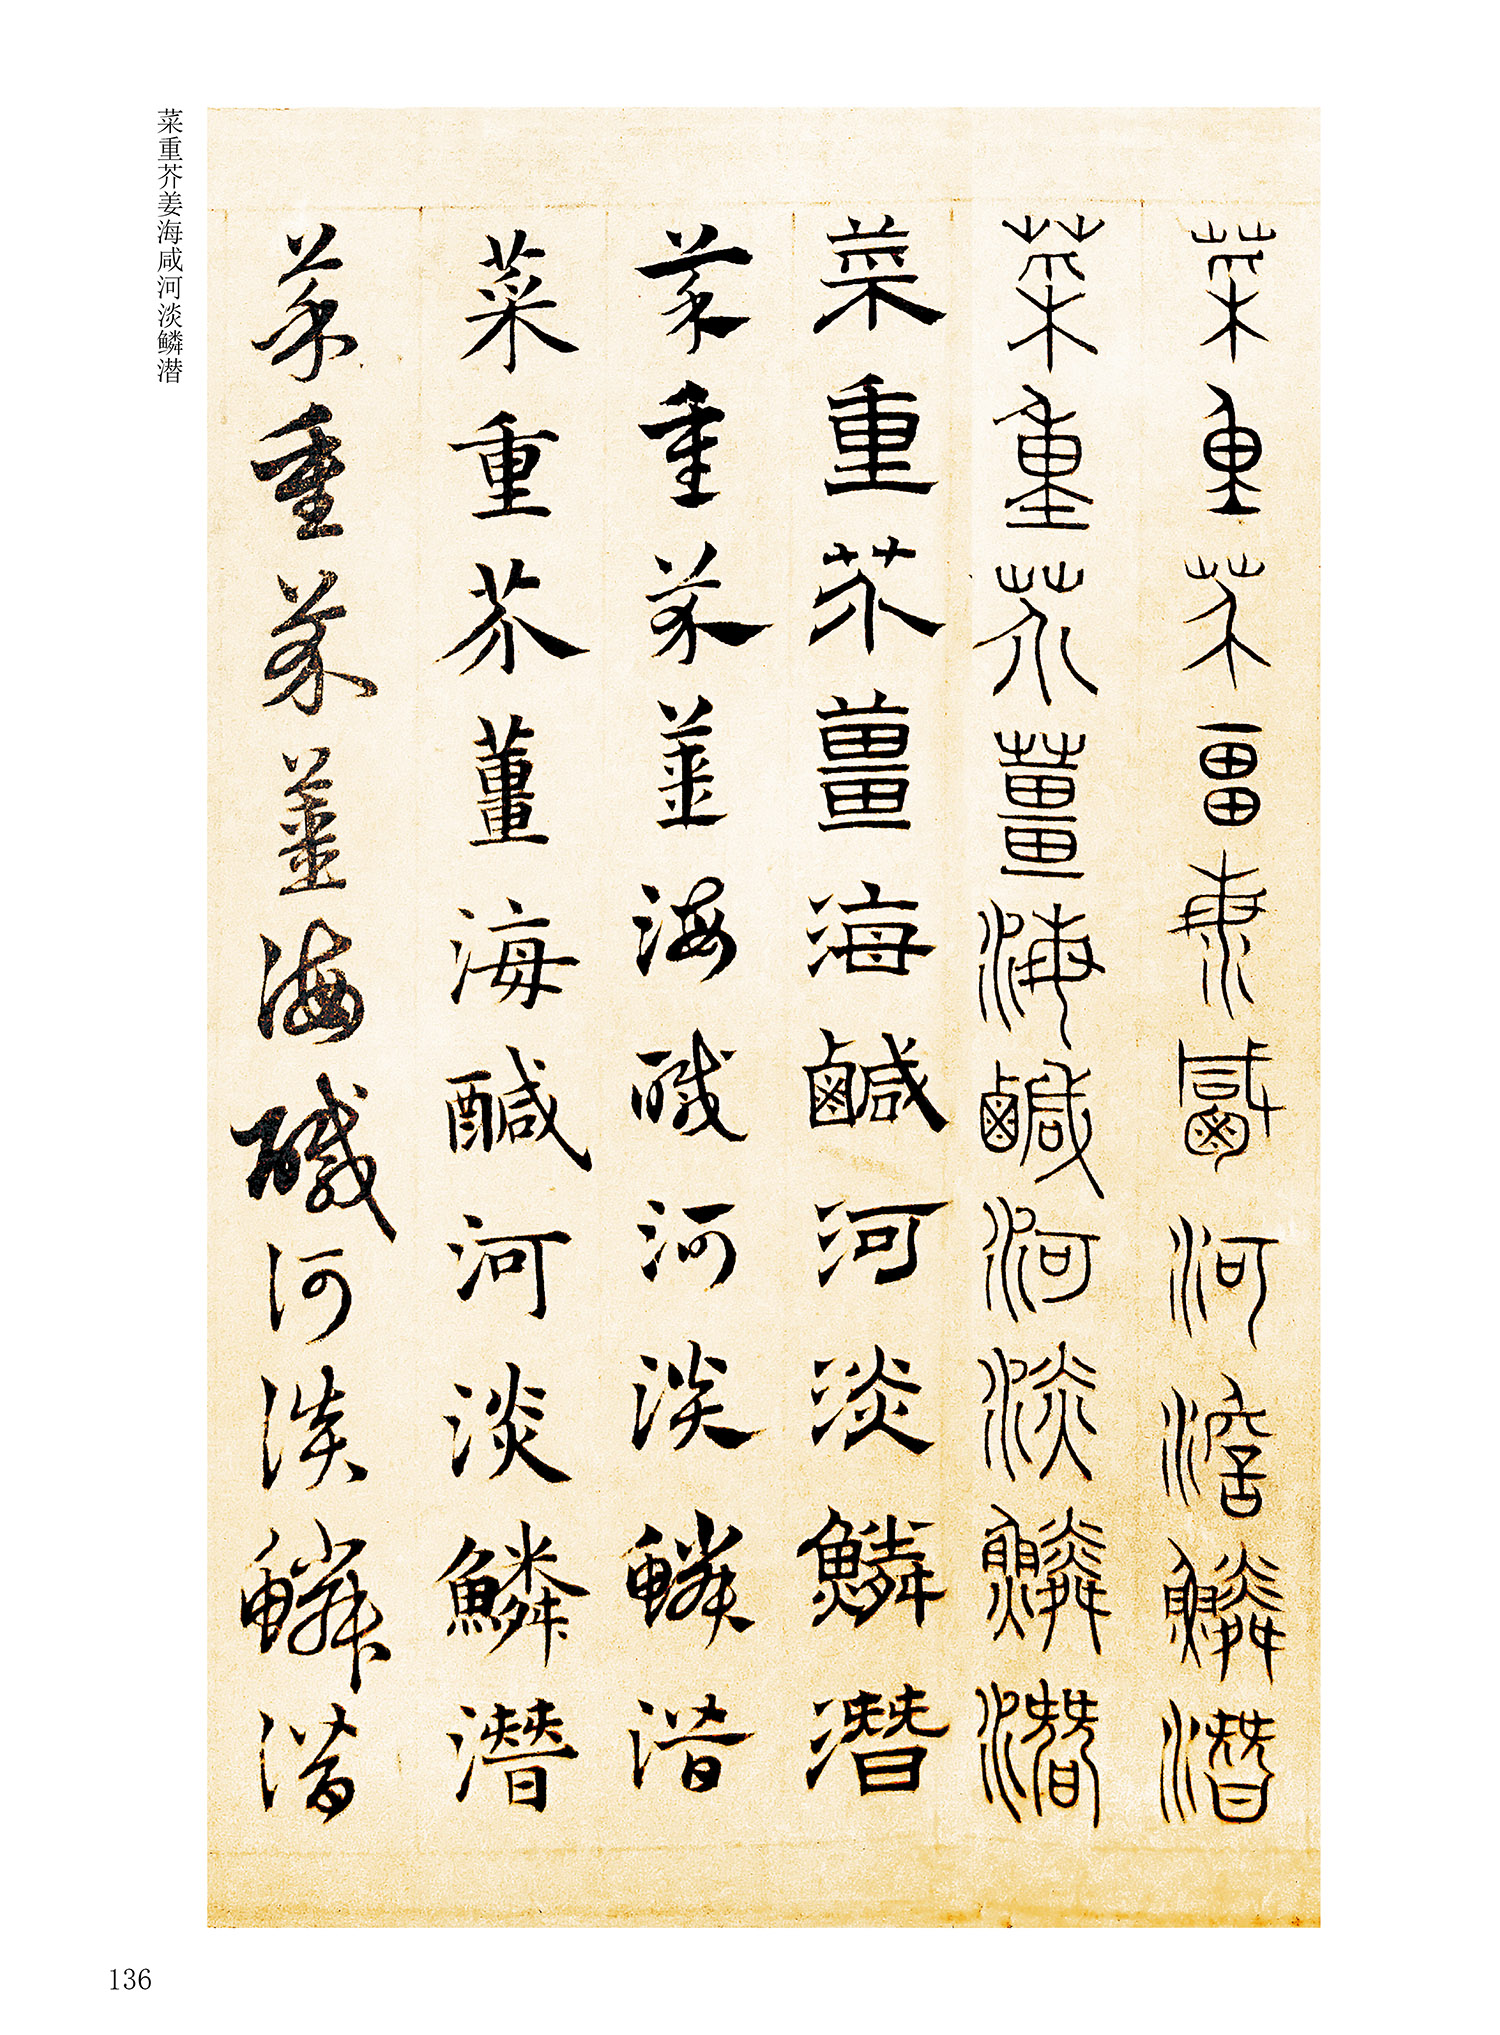 菜重芥畺海鹹河澹鱗潛
菜重芥薑海鹹河淡鱗潛
菜重芥薑海鹹河淡鱗潛
菜重芥薑海醎河淡鱗潛
菜重芥薑海醎河淡鱗潛
菜重芥薑海醎河淡鱗潛
菜重芥姜海咸河淡鳞潜
136